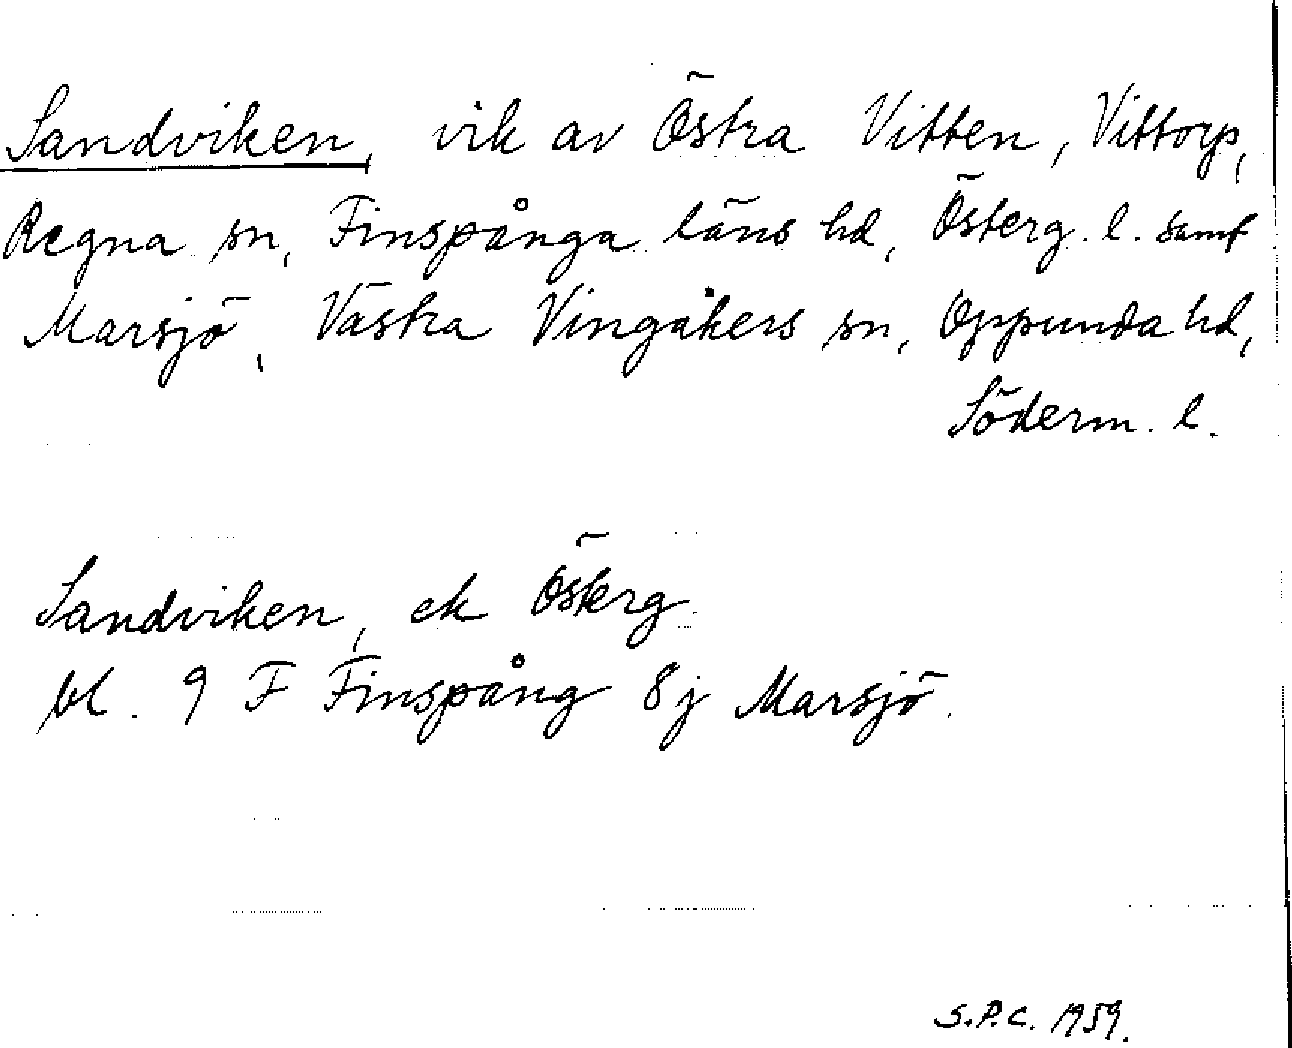 Sandviken, vik av Östra Vitten, Vittorp,
Regna sn, Finspånga läns hd, Österg. l. samt
Marsjö, Västra Vingåkers sn, Oppunda hd,
Söderm. l.
Sandviken, ek Österg
bl. 9 F Finspång 8j Marsjö.
S.P.C. 1959.